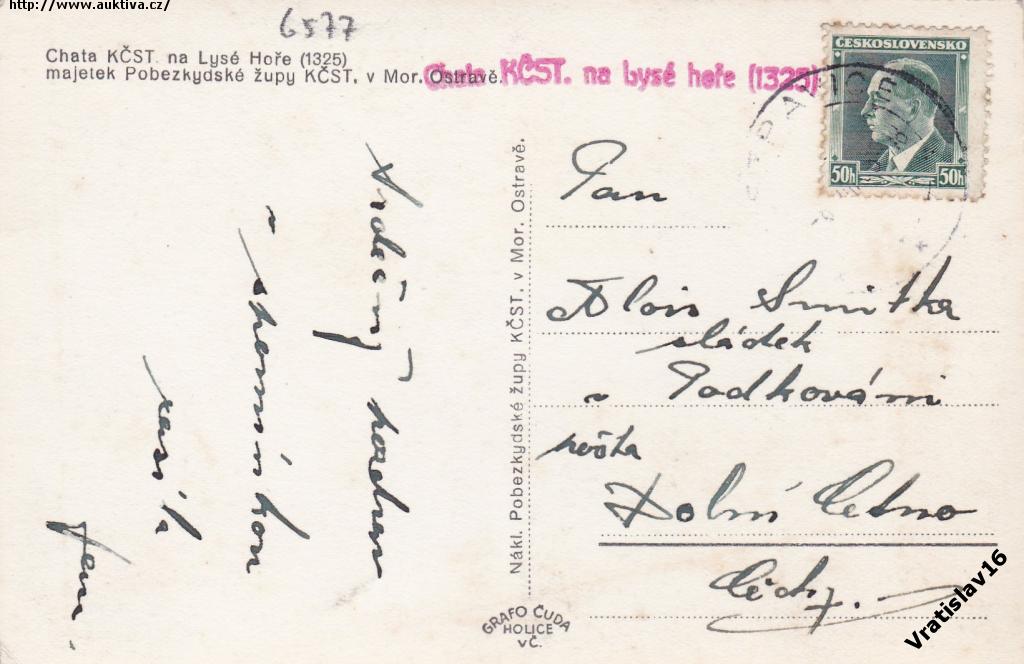 http://www.auktiva.cz/
6577
Chata KČST. na Lysé Hoře (1325)
majetek Pobezkydské župy KČST. v Mor. Ostravě.
Chata KČST. na Lysé hoře (1325)
ČESKOSLOVENSKO
50h 50h
Srdečný pozdrav
se vzpomínkou
zasílá
Nákl. Pobezkydské župy KČST. v Mor. Ostravě.
Pan
Alois Smitka
sládek
v Podkováni
pošta
Dolní Cetno
Čechy.
GRAFO ČUDA
HOLICE
v Č.
Vratislav16